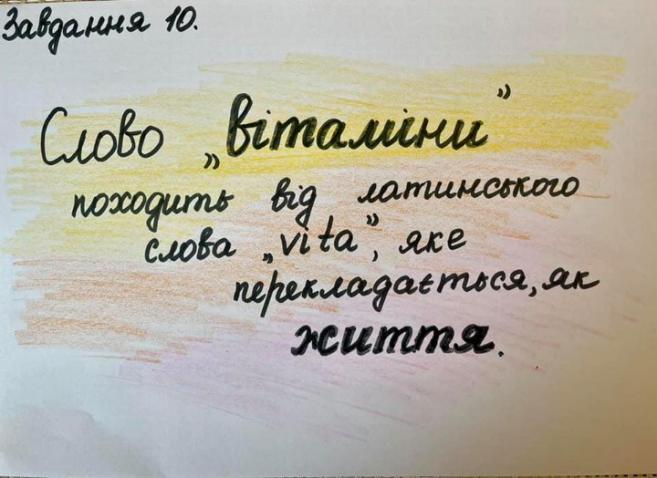 Завдання 10.
Слово „вітаміни”
походить від латинського
слова „vita”, яке
перекладається, як
життя.